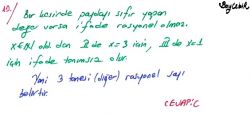 10.) Bir kesirde paydayı sıfır yapan
değer varsa ifade rasyonel olmaz.
x∈N old. dan II de x=3 için, III de x=1
için ifade tanımsız olur.
Yani 3 tanesi (diğer) rasyonel sayı
belirtir.
CEVAP: C